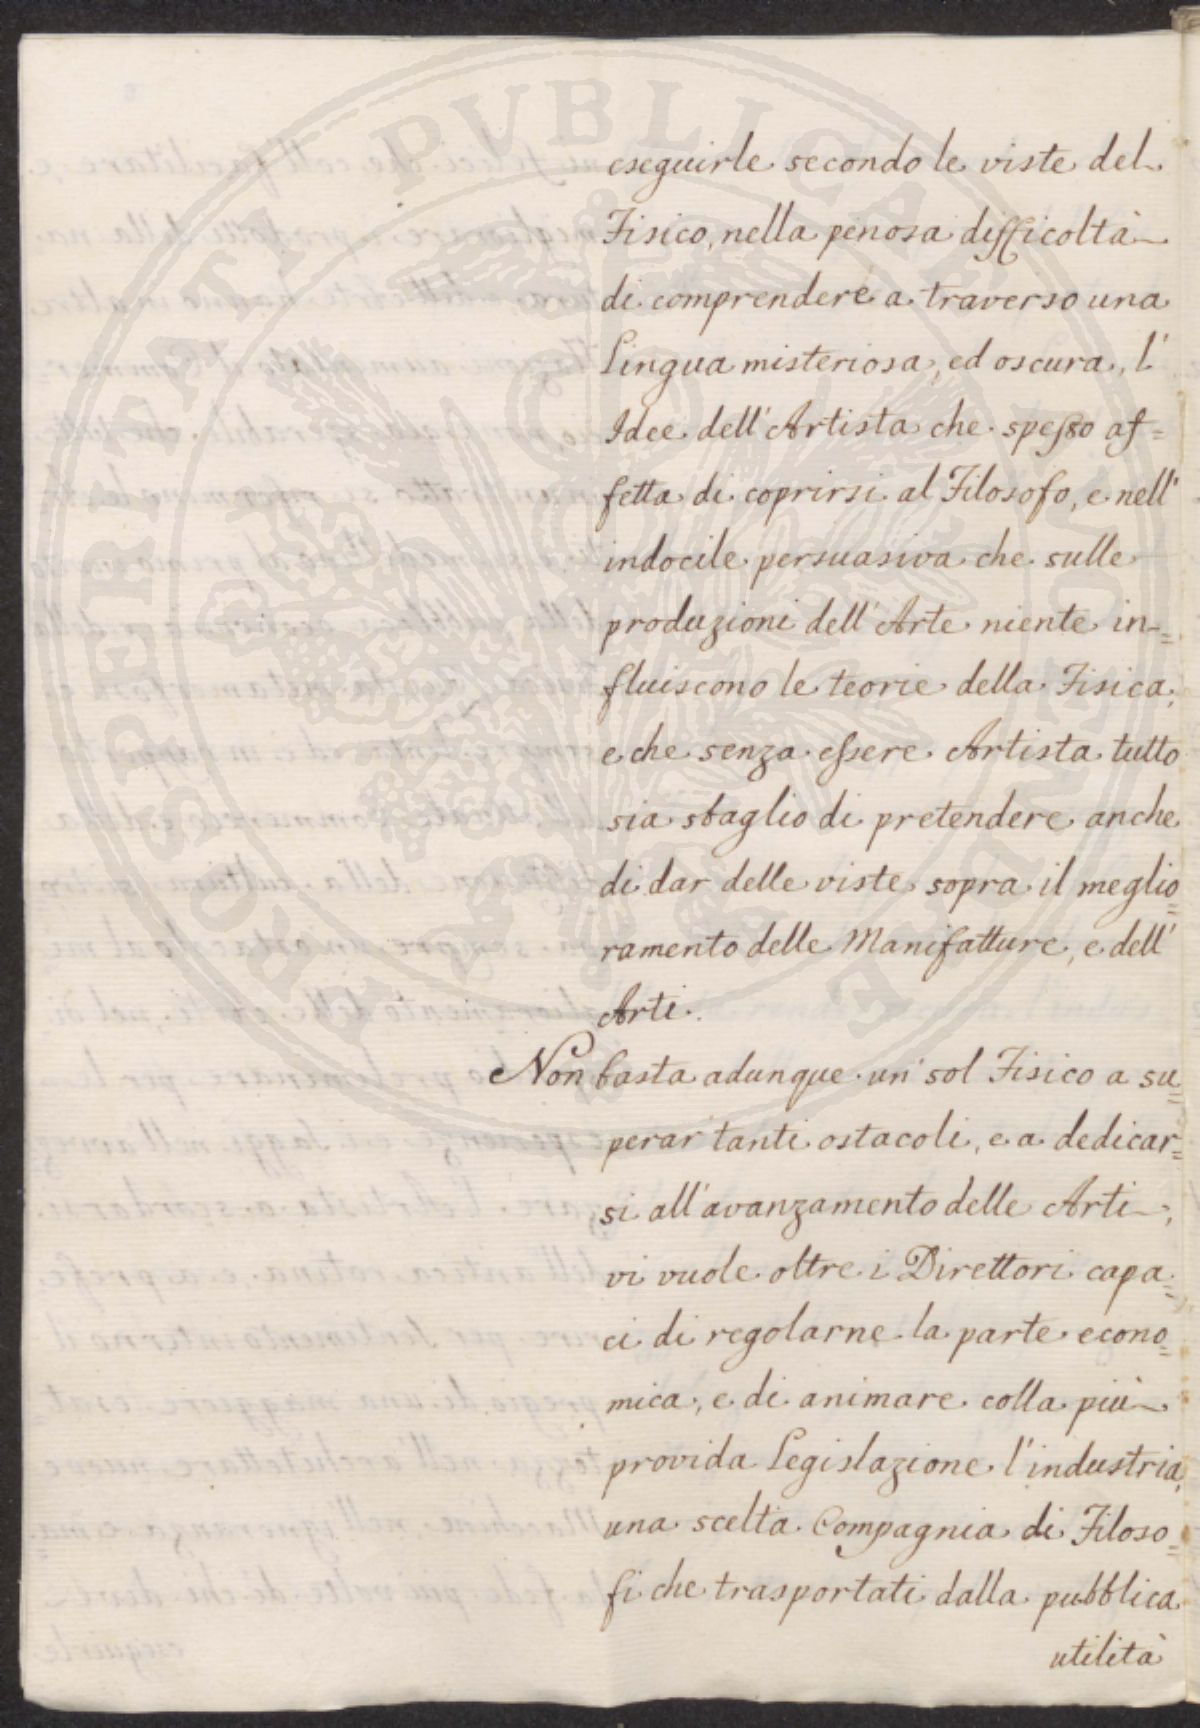 eseguirle secondo le viste del
Fisico, nella penosa difficoltà
di comprendere a traverso una
Lingua misteriosa, ed oscura, l'
Idee dell'Artista che spesso af=
fetta di coprirsi al Filosofo, e nell'
indocile persuasiva che sulle
produzioni dell'Arte niente in=
fluiscono le teorie della Fisica,
e che senza essere Artista tutto
sia sbaglio di pretendere anche
di dar delle viste sopra il meglio=
ramento delle Manifatture, e dell'
Arti.
Non basta adunque un sol Fisico a su=
perar tanti ostacoli, e a dedicar=
si all'avanzamento delle Arti,
vi vuole oltre i Direttori capa=
ci di regolarne la parte econo=
mica, e di animare colla più
provida Legislazione l'industria,
una scelta Compagnia di Filoso=
fi che trasportati dalla pubblica
utilità
PROSPERITATI PUBLICAE AUGENDAE